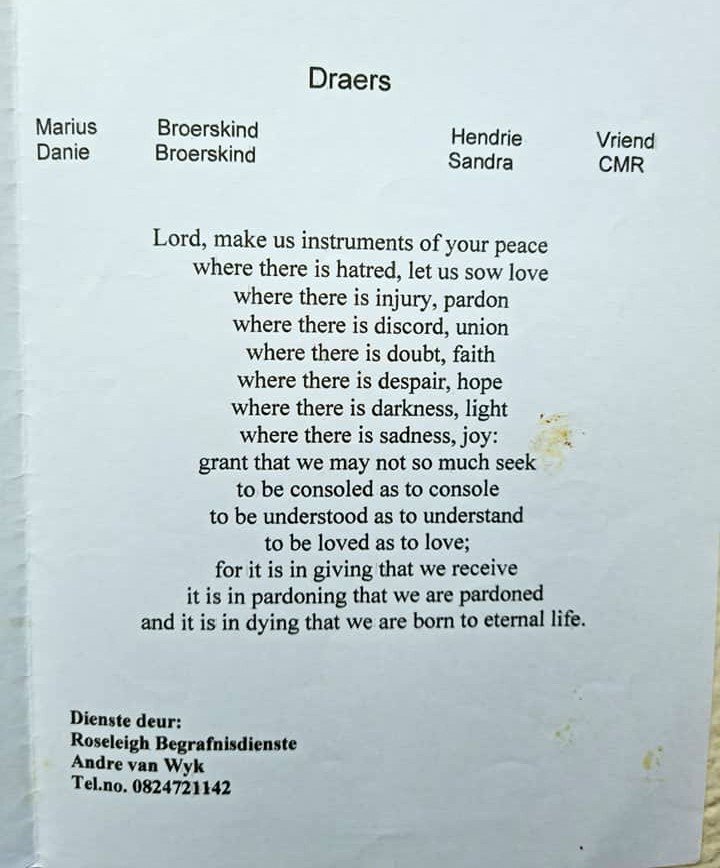 Draers
Marius Broerskind Hendrie Vriend
Danie Broerskind Sandra CMR
Lord, make us instruments of your peace
where there is hatred, let us sow love
where there is injury, pardon
where there is discord, union
where there is doubt, faith
where there is despair, hope
where there is darkness, light
where there is sadness, joy:
grant that we may not so much seek
to be consoled as to console
to be understood as to understand
to be loved as to love;
for it is in giving that we receive
it is in pardoning that we are pardoned
and it is in dying that we are born to eternal life.
Dienste deur:
Roseleigh Begrafnisdienste
Andre van Wyk
Tel.no. 0824721142